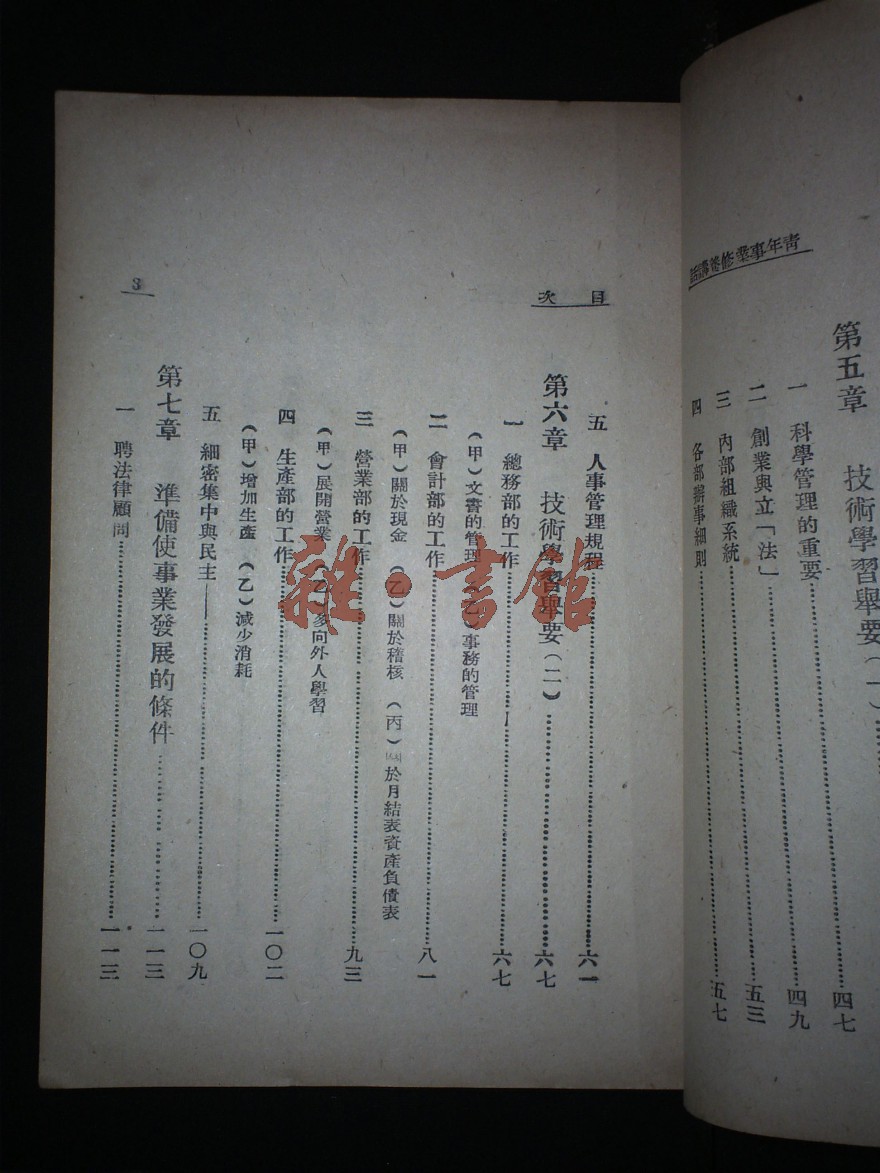 青年事業修養講話
第五章 技術學習舉要(一)……四七
一 科學管理的重要……四九
二 創業與立「法」……五三
三 內部組織系統……五七
四 各部辦事細則……
目次
五 人事管理規程……六一
第六章 技術學習舉要(二)……六七
一 總務部的工作……六七
(甲)文書的管理 (乙)事務的管理
二 會計部的工作……八一
(甲)關於現金 (乙)關於稽核 (丙)關於月結表資產負債表
三 營業部的工作……九三
(甲)展開營業 (乙)多向外人學習
四 生產部的工作……一〇二
(甲)增加生產 (乙)減少消耗
五 細密集中與民主……一〇九
第七章 準備使事業發展的條件……一一三
一 聘法律顧問……一一三
3
雜·書館